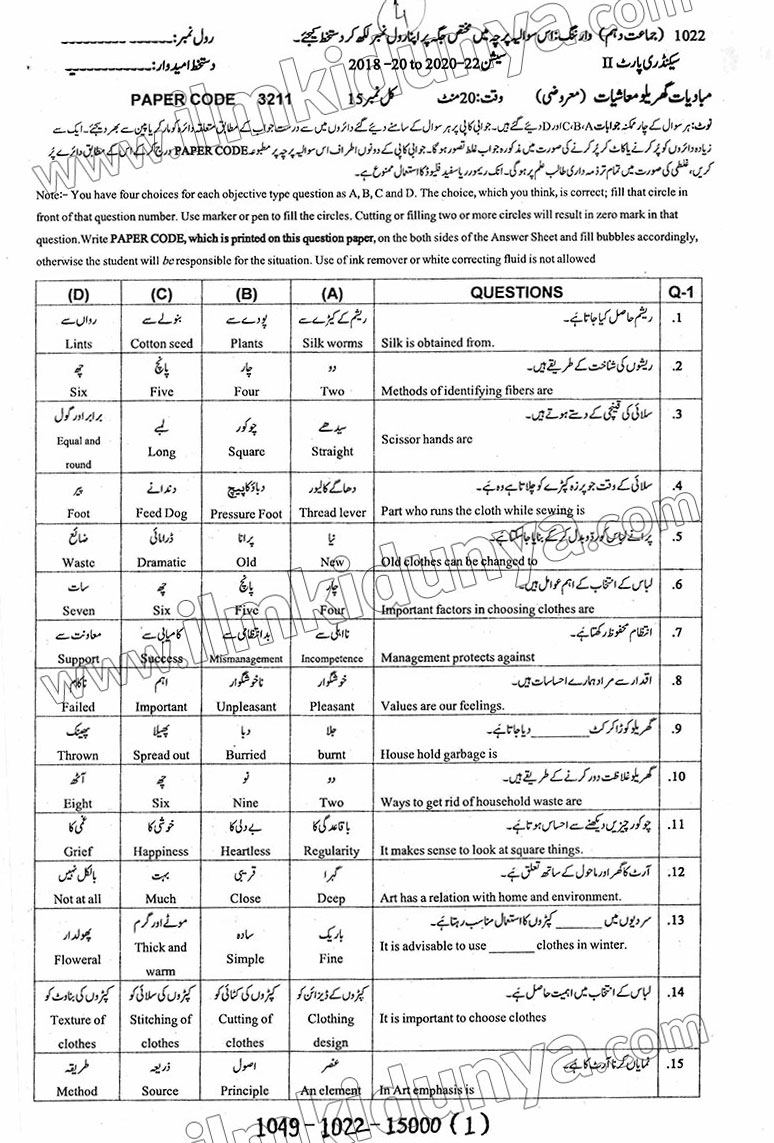 1022 (جماعت دہم) وارننگ: اس سوالیہ پرچہ میں مختص جگہ پر اپنا رول نمبر لکھ کر دستخط کیجئے۔ رول نمبر:
سیکنڈری پارٹ II سیشن 2018-20 to 2020-22 دستخط امیدوار:
مبادیات گھریلو معاشیات (معروضی) وقت: 20 منٹ کل نمبر 15 PAPER CODE 3211
نوٹ: ہر سوال کے چار ممکنہ جوابات A، B، C اور D دیئے گئے ہیں۔ جوابی کاپی پر ہر سوال کے سامنے دیئے گئے دائروں میں سے درست جواب کے مطابق متعلقہ دائرہ کو مارکر یا پین سے بھر دیجئے۔ ایک سے
زیادہ دائروں کو پُر کرنے یا کاٹ کر پُر کرنے کی صورت میں مذکورہ جواب غلط تصور ہوگا۔ جوابی کاپی کے دونوں اطراف اس سوالیہ پرچہ پر مطبوعہ PAPER CODE درج کر کے اس کے مطابق دائرے پر
کریں، غلطی کی صورت میں تمام تر ذمہ داری طالب علم پر ہوگی۔ انک ریموور یا سفید فلیوڈ کا استعمال ممنوع ہے۔
Note:- You have four choices for each objective type question as A, B, C and D. The choice, which you think, is correct; fill that circle in
front of that question number. Use marker or pen to fill the circles. Cutting or filling two or more circles will result in zero mark in that
question.Write PAPER CODE, which is printed on this question paper, on the both sides of the Answer Sheet and fill bubbles accordingly,
otherwise the student will be responsible for the situation. Use of ink remover or white correcting fluid is not allowed
(D) (C) (B) (A) QUESTIONS Q-1
رواں سے بنولے سے پودے سے ریشم کے کیڑے سے ریشم حاصل کیا جاتا ہے۔ .1
Lints Cotton seed Plants Silk worms Silk is obtained from.
چھ پانچ چار دو ریشوں کی شناخت کے طریقے ہیں۔ .2
Six Five Four Two Methods of identifying fibers are
برابر اور گول لمبے چوکور سیدھے سلائی کی قینچی کے دستے ہوتے ہیں۔ .3
Equal and round Long Square Straight Scissor hands are
پیر دندانے دباؤ کا پیچ دھاگے کا لیور سلائی کے وقت جو پرزہ کپڑے کو چلاتا ہے وہ ہے۔ .4
Foot Feed Dog Pressure Foot Thread lever Part who runs the cloth while sewing is
ضائع ڈرامائی پرانا نیا پرانے لباس کو ردوبدل کر کے بنایا جا سکتا ہے۔ .5
Waste Dramatic Old New Old clothes can be changed to
سات چھ پانچ چار لباس کے انتخاب کے اہم عوامل ہیں۔ .6
Seven Six Five Four Important factors in choosing clothes are
معاونت سے کامیابی سے بدانتظامی سے نااہلی سے انتظام محفوظ رکھتا ہے۔ .7
Support Success Mismanagement Incompetence Management protects against
ناکام اہم ناخوشگوار خوشگوار اقدار سے مراد ہمارے احساسات ہیں۔ .8
Failed Important Unpleasant Pleasant Values are our feelings.
پھینک پھیلا دبا جلا گھریلو کوڑا کرکٹ ________ دیا جاتا ہے۔ .9
Thrown Spread out Burried burnt House hold garbage is
آٹھ چھ نو دو گھریلو غلاظت دور کرنے کے طریقے ہیں۔ .10
Eight Six Nine Two Ways to get rid of household waste are
غمی کا خوشی کا بے دلی کا باقاعدگی کا چوکور چیزیں دیکھنے سے احساس ہوتا ہے۔ .11
Grief Happiness Heartless Regularity It makes sense to look at square things.
بالکل نہیں بہت قریبی گہرا آرٹ کا گھر اور ماحول کے ساتھ تعلق ہے۔ .12
Not at all Much Close Deep Art has a relation with home and environment.
پھولدار موٹے اور گرم سادہ باریک سردیوں میں ______ کپڑوں کا استعمال مناسب رہتا ہے۔ .13
Floweral Thick and warm Simple Fine It is advisable to use ______ clothes in winter.
کپڑوں کی بناوٹ کو کپڑوں کی سلائی کو کپڑوں کی کٹائی کو کپڑوں کے ڈیزائن کو لباس کے انتخاب میں اہمیت حاصل ہے۔ .14
Texture of clothes Stitching of clothes Cutting of clothes Clothing design It is important to choose clothes
طریقہ ذریعہ اصول عنصر نمایاں کرنا آرٹ کا ہے۔ .15
Method Source Principle An element In Art emphasis is
1049-1022-15000 (1)
www.ilmkidunya.com
www.ilmkidunya.com
www.ilmkidunya.com